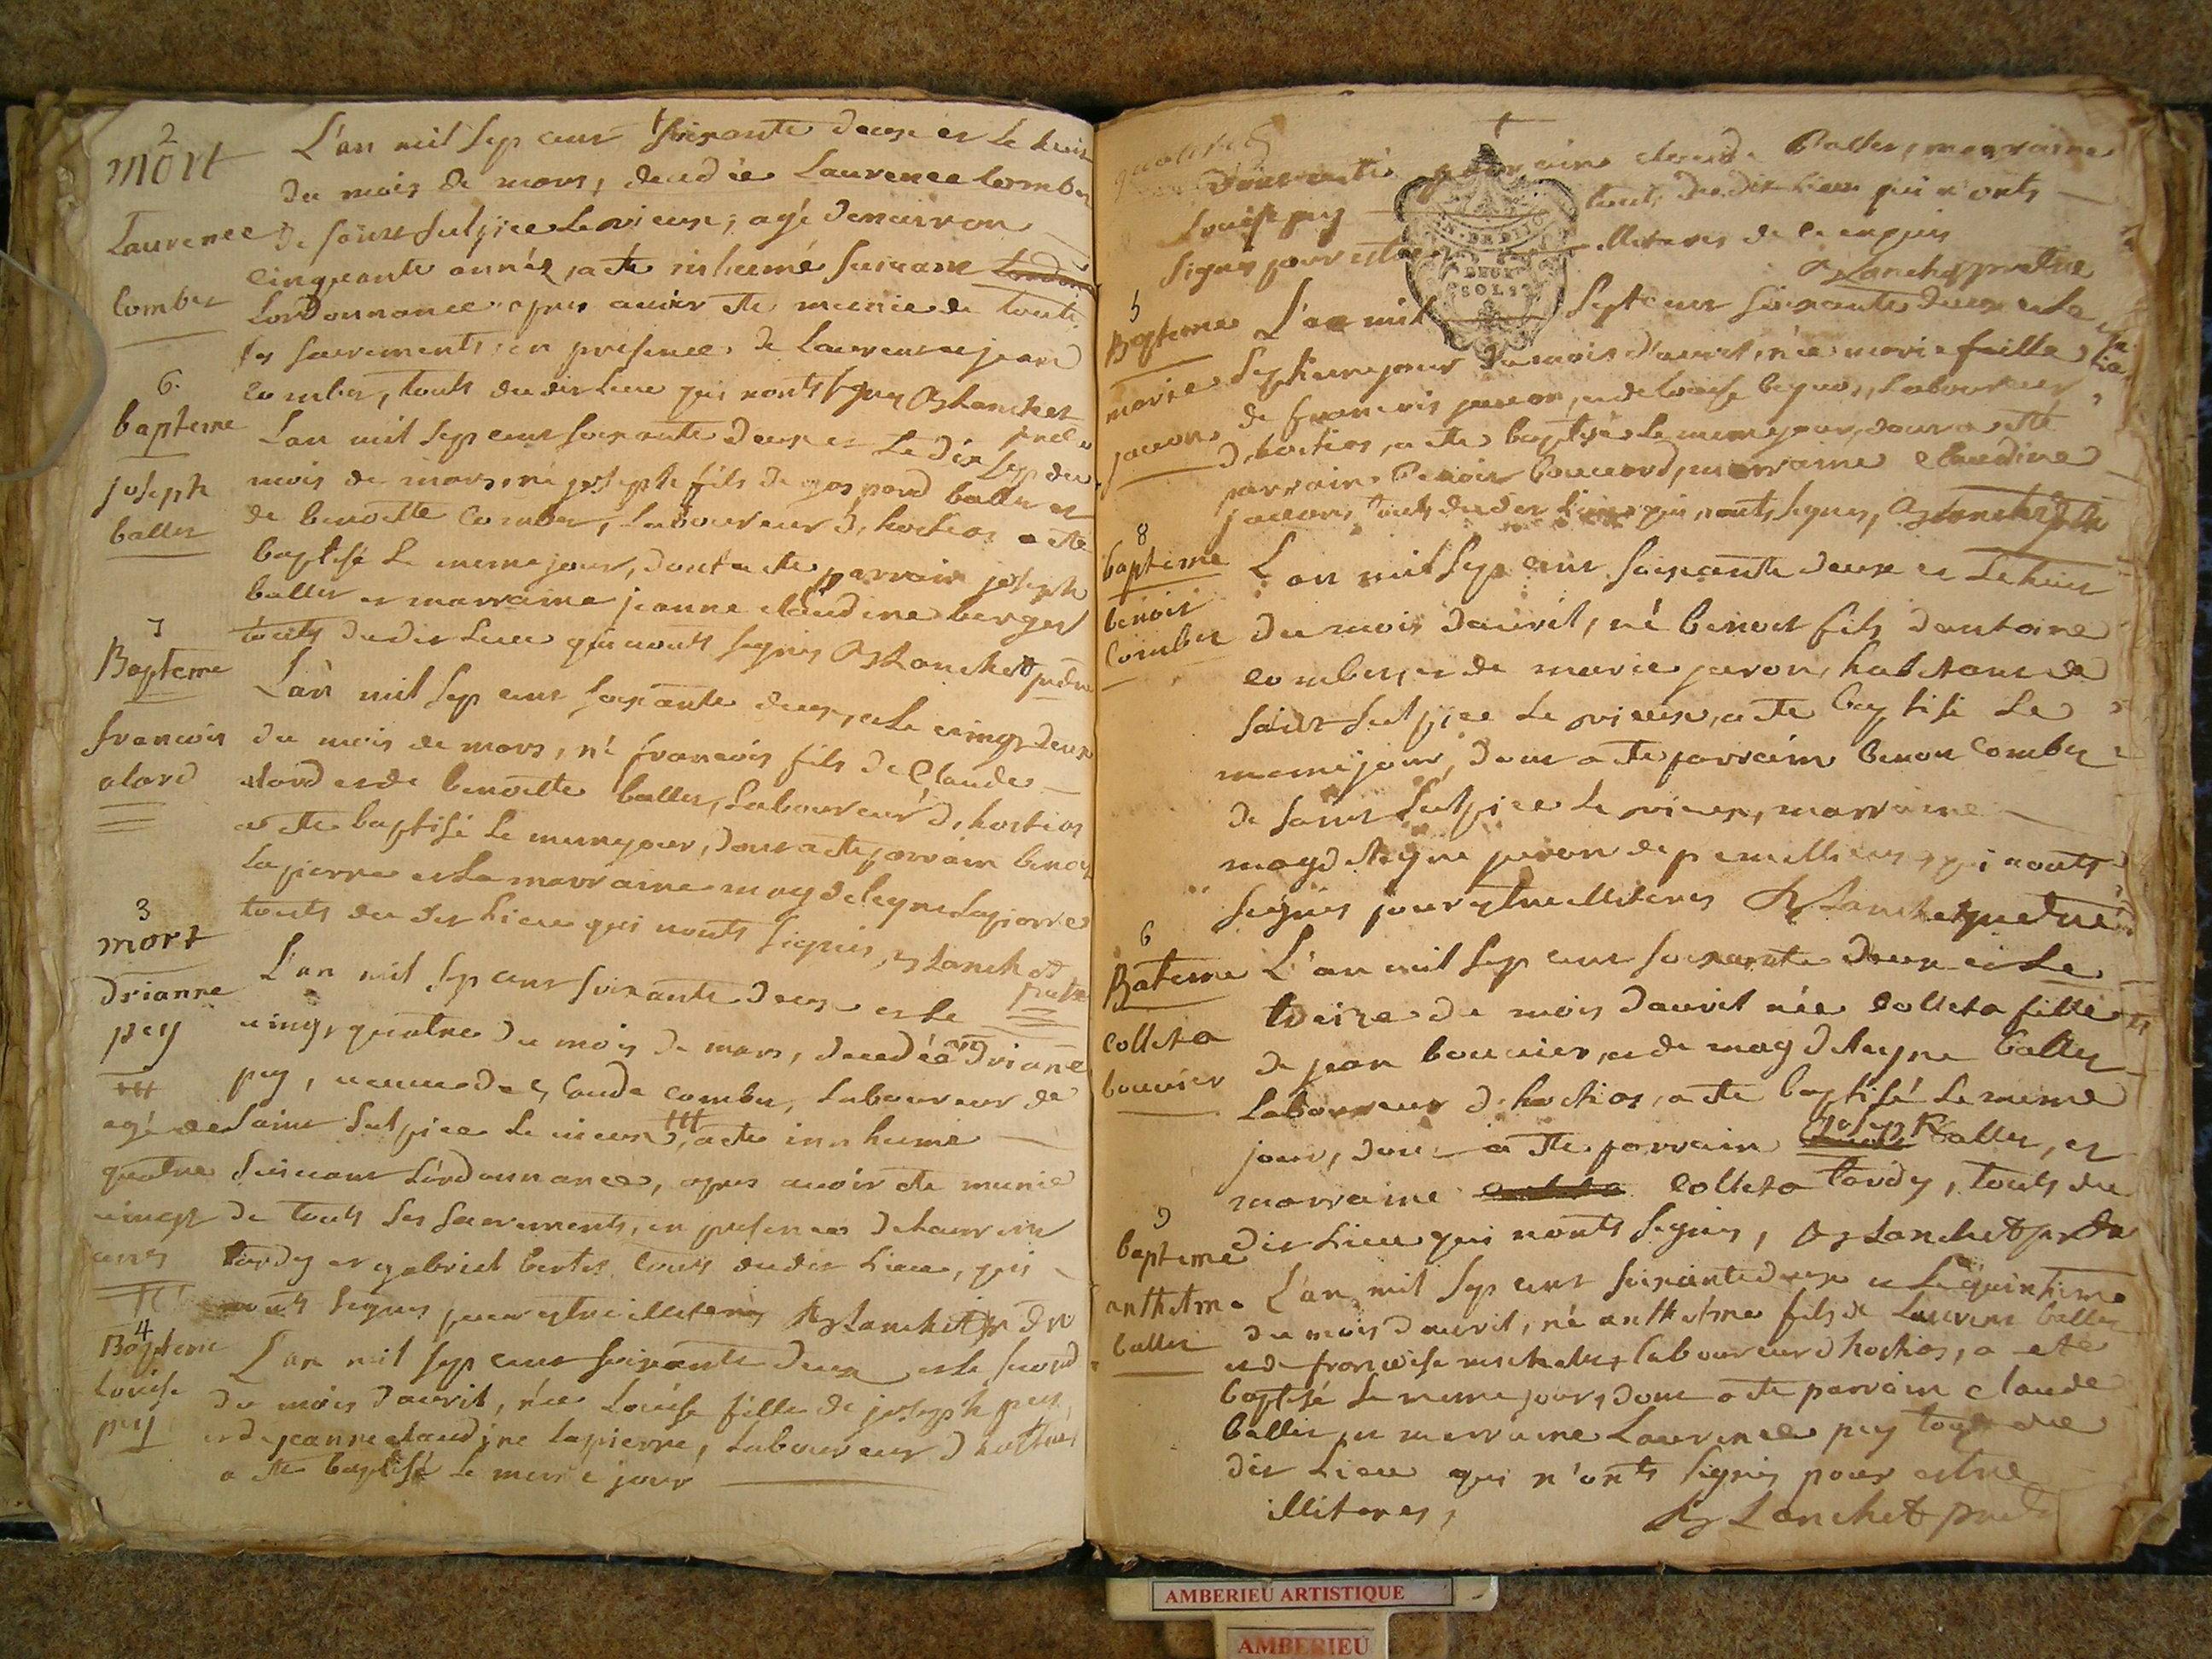 2
mort
Laurence
Combet
L'an mil sep cent soixante deux et le huit
du mois de mars, decedée Laurence Combet
de saint sulpice le vieux, agé denuiron
cinquante année, a ete inhumé suiuant
Lordonnance apres auoir ete munie de touts
ses sacrements, en presence de Laurent et jean
combet, touts dudit lieu qui nonts signes Lanchet
pretre
6
bapteme
joseph
ballet
Lan mil sep cent soixante deux et le dix sep du
mois de mars, né joseph fils de gaspard ballet et
de benoitte Combet, laboureur d'hostias a ete
baptisé le meme jour, dont a ete parrain joseph
ballet et marraine jeanne claudine berger
touts dudit lieu qui nonts signés Lanchett pretre
7
Bapteme
francois
alard
L'an mil sep cent soixante deux, et le uingt deux
du mois de mars, né francois fils de Claude
alard et de benoitte ballet, laboureur d'hostias
a ete baptisé le meme jour, dont a ete parrain benoit
Lapierre et la marraine magdeleyne Lapierre
touts du dit lieu qui nonts signés, Lanchett
pretre
3
mort
Drianne
pey
L'an mil sep cent soixante deux et le
uingt quatre du mois de mars, decedée Driane
pey, ueuue de Claude combet, laboureur de
saint sulpice le uieux, a ete innhumé
agé de
quatre
uingt
ans
suiuant Lordonnance, apres auoir ete munie
de touts ses sacrements, en presence de Laurent
tardy et gabriel bertet touts dudit lieu, qui
nonts signes pour estre illiteres Lanchett pdre
4
Bapteme
Louise
pey
L'an mil sep cent soixante deux et le second
du mois d'auril, née Louise fille de joseph pey,
et de jeanne claudine lapierre, laboureur d'hostias
a ete baptisé le meme jour
dont a ete parraine claude Ballet, marraine
Louise pey touts dudit lieu qui n'onts
signes pour estre illiteres de ce enquis
Lanchet pretre
DEUX
SOLS
5
Bapteme
marie
jacon
L'an mil sept cent soixante deux et le
septieme jour du mois d'auril, née marie fille
de francois jacon, et de Louise, laboureur
d'hostias, a ete baptisé le meme jour, dont a ete
parrain Benoit bouuard, marraine claudine
jacon, touts dudit lieu qui nonts signes, Lanchet pdre
8
bapteme
benoit
Combet
L'an mil sep cent soixante deux et le huit
du mois d'auril, né benoit fils d'antoine
combet, et de marie peron, habitant de
saint sulpice le vieux, a ete baptisé le
meme jour, dont a ete parrain benoit Combet
de saint sulpice le vieux, marraine
magdeleyne peron de, qui nonts
signes pour estre illiteres Lanchet pretre
6
Bateme
Colleta
bouuier
L'an mil sep cent soixante deux et le
treize du mois d'auril née Colleta fille
de jean bouuier, et de magdeleyne ballet
laboureur d'hostias, a ete baptisé le meme
jour, dont a ete parrain joseph ballet, et
marraine colleta tardy, touts du
dit lieu qui nonts signés, Lanchet pdre
9
bapteme
anthelme
ballet
L'an mil sep cent soixante deux et le quinsieme
du mois d'auril, né anthelme fils de Laurent ballet
et de francoise, laboureur d'hostias, a ete
baptisé le meme jour, dont a ete parrain claude
ballet, et marraine Laurence pey touts du
dit lieu qui n'onts signés pour estre
illiteres,
Lanchett pretre
AMBERIEU ARTISTIQUE
AMBERIEU